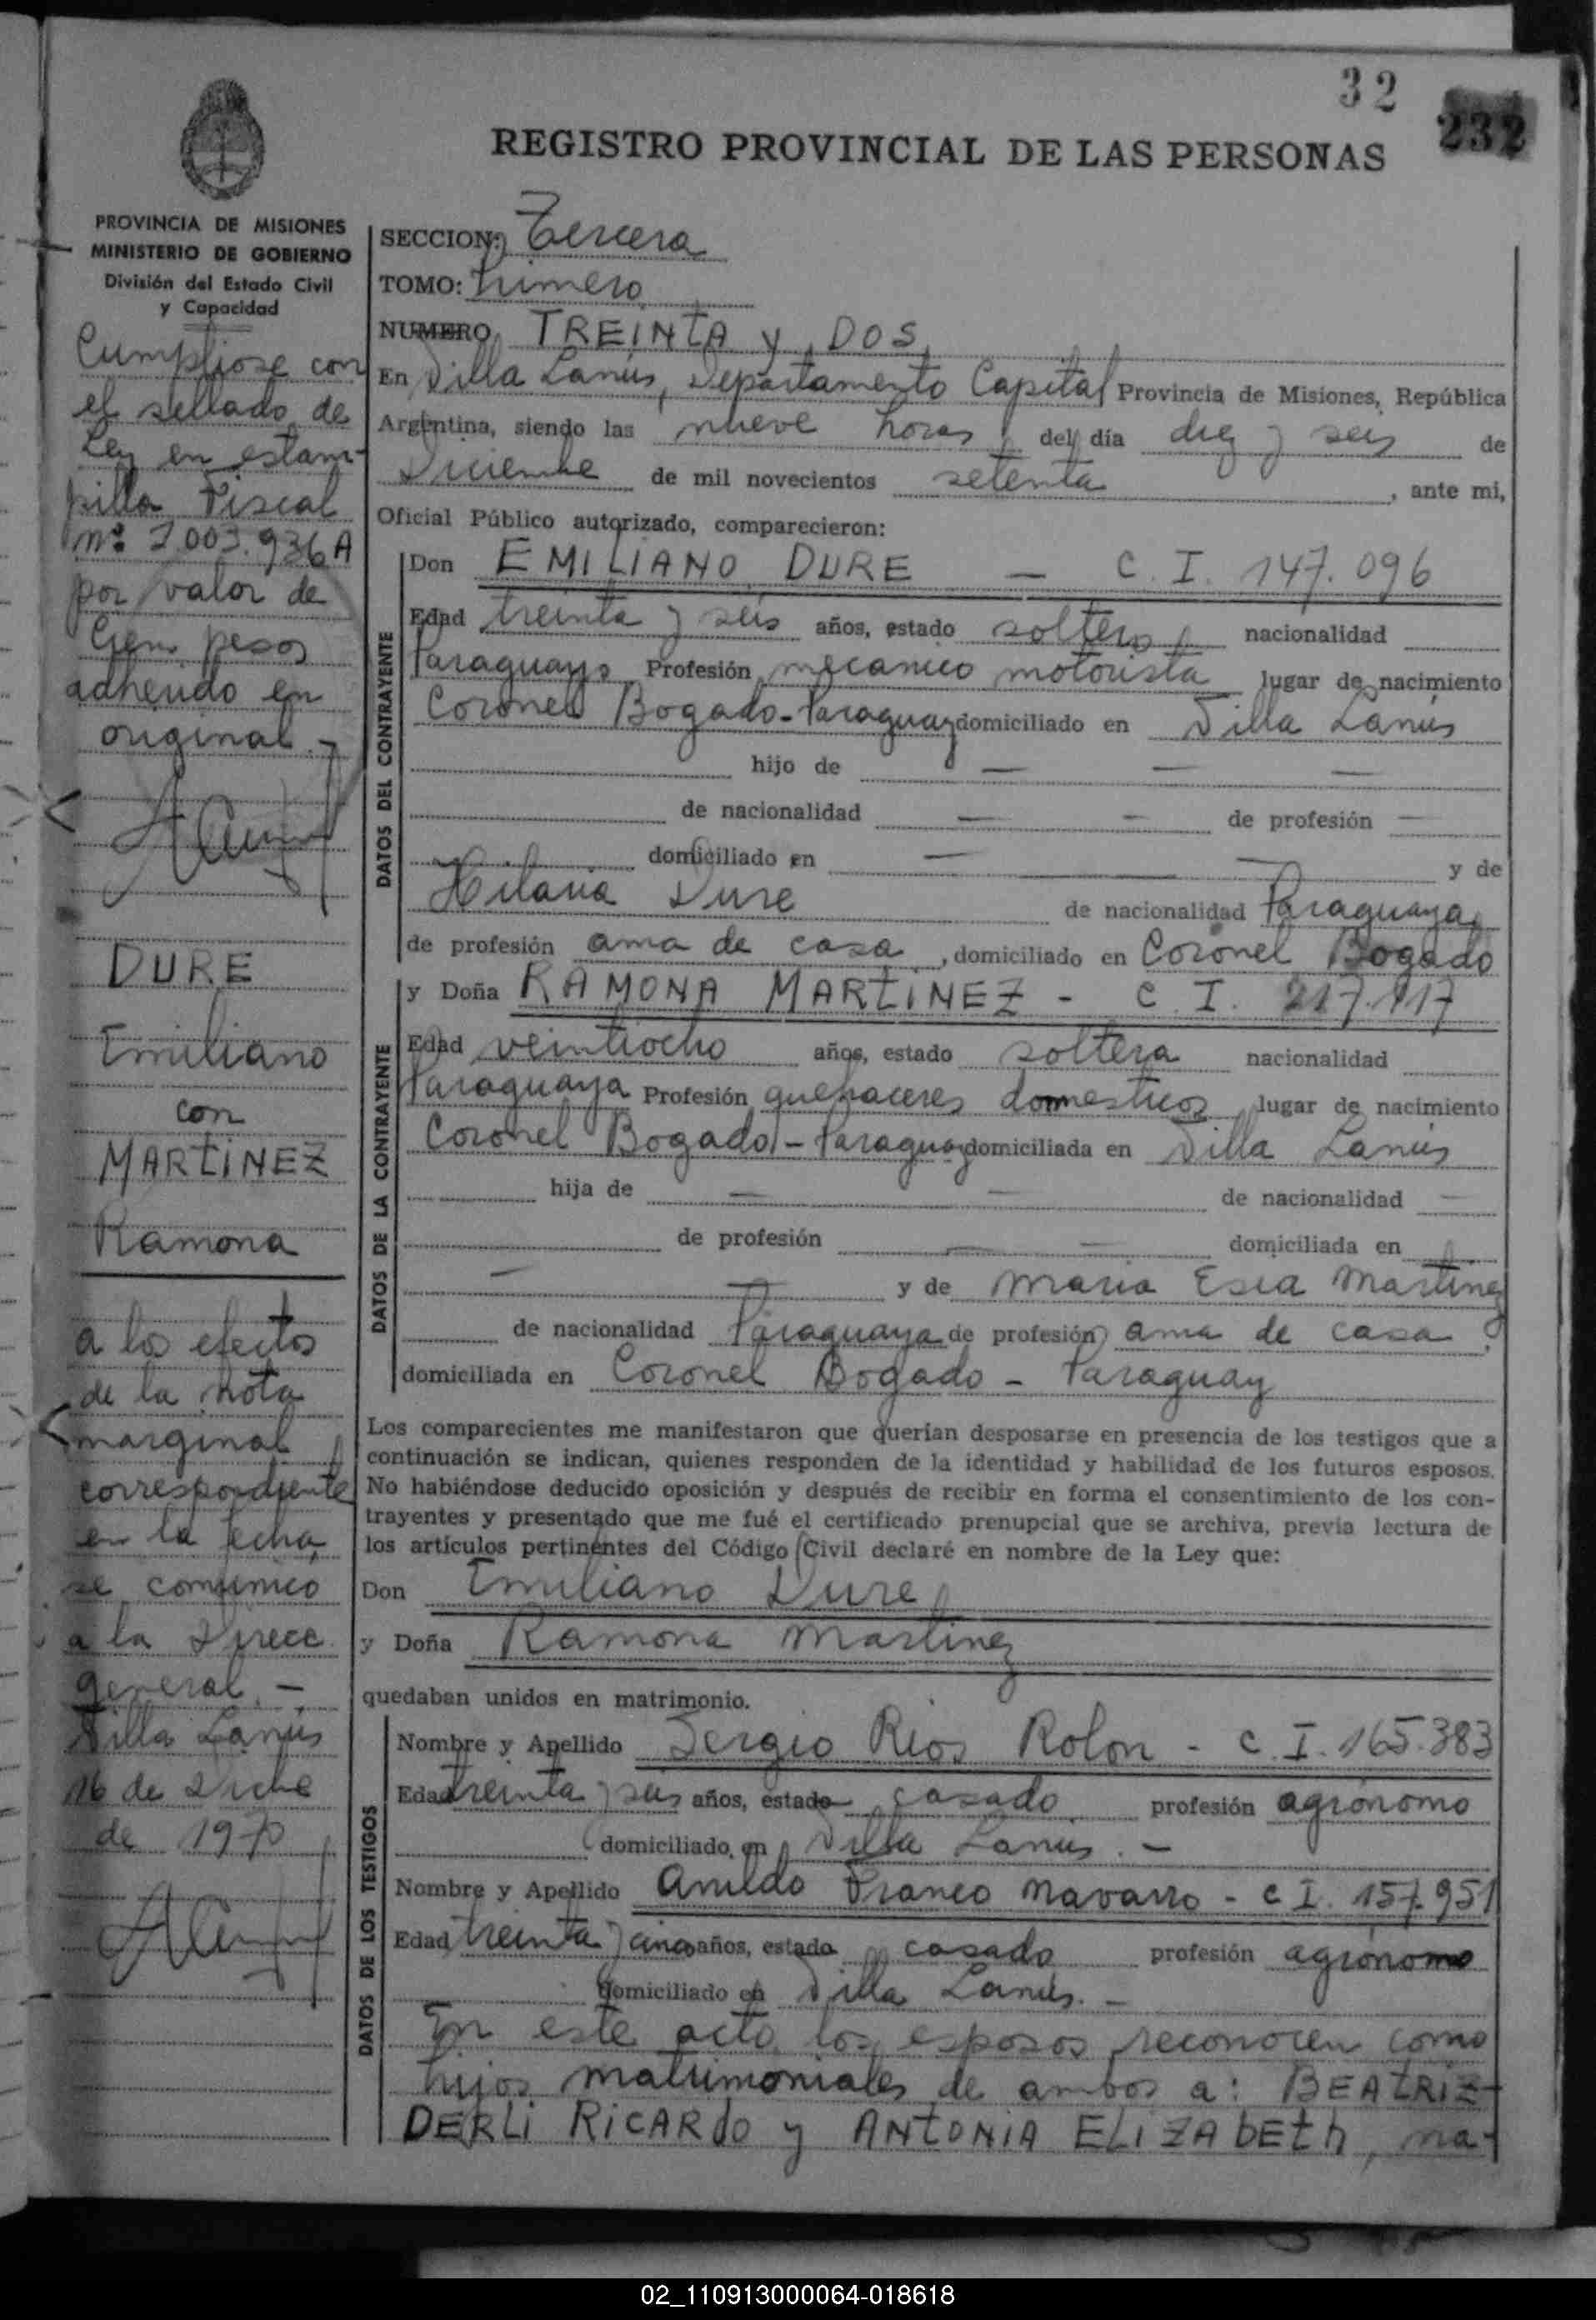 32
232
REGISTRO PROVINCIAL DE LAS PERSONAS
PROVINCIA DE MISIONES
MINISTERIO DE GOBIERNO
División del Estado Civil
y Capacidad
Cumpliose con
el sellado de
Ley en estam-
pilla Fiscal
nº 7.003.936 A
por valor de
Cien pesos
adherido en
original.-
DURE
Emiliano
con
MARTINEZ
Ramona
a los efectos
de la nota
marginal
correspondiente
en la fecha
se comunico
a la Direcc.
general.-
Villa Lanús
16 de Dicbe
de 1970
SECCION: Tercera
TOMO: Primero
NUMERO TREINTA y DOS
En Villa Lanús, Departamento Capital Provincia de Misiones, República
Argentina, siendo las nueve horas del día diez y seis de
Diciembre de mil novecientos setenta, ante mi,
Oficial Público autorizado, comparecieron:
DATOS DEL CONTRAYENTE
Don EMILIANO DURE — C. I. 147.096
Edad treinta y seis años, estado soltero nacionalidad
Paraguayo Profesión mecanico motorista lugar de nacimiento
Coronel Bogado - Paraguay domiciliado en Villa Lanús
hijo de — — —
de nacionalidad — — de profesión —
domiciliado en — — y de
Hilaria Dure de nacionalidad Paraguaya,
de profesión ama de casa, domiciliado en Coronel Bogado
DATOS DE LA CONTRAYENTE
y Doña RAMONA MARTINEZ - C. I. 217.117
Edad veintiocho años, estado soltera nacionalidad
Paraguaya Profesión quehaceres domesticos lugar de nacimiento
Coronel Bogado - Paraguay domiciliada en Villa Lanús
hija de — — de nacionalidad —
de profesión — — domiciliada en
— — y de Maria Martinez
de nacionalidad Paraguaya de profesión ama de casa,
domiciliada en Coronel Bogado - Paraguay
Los comparecientes me manifestaron que querían desposarse en presencia de los testigos que a
continuación se indican, quienes responden de la identidad y habilidad de los futuros esposos.
No habiéndose deducido oposición y después de recibir en forma el consentimiento de los con-
trayentes y presentado que me fué el certificado prenupcial que se archiva, previa lectura de
los artículos pertinentes del Código Civil declaré en nombre de la Ley que:
Don Emiliano Dure
y Doña Ramona Martinez
quedaban unidos en matrimonio.
DATOS DE LOS TESTIGOS
Nombre y Apellido Sergio Rios Rolon - C. I. 165.383
Edad treinta y seis años, estado casado profesión agrónomo
domiciliado en Villa Lanús. -
Nombre y Apellido Franco Navarro - C I. 157.951
Edad treinta y cinco años, estado casado profesión agrónomo
domiciliado en Villa Lanús. -
En este acto los esposos reconocen como
hijos matrimoniales de ambos a: BEATRIZ-
DERLI RICARdo y ANTONIA ELIZAbEth, na-
02_110913000064-018618